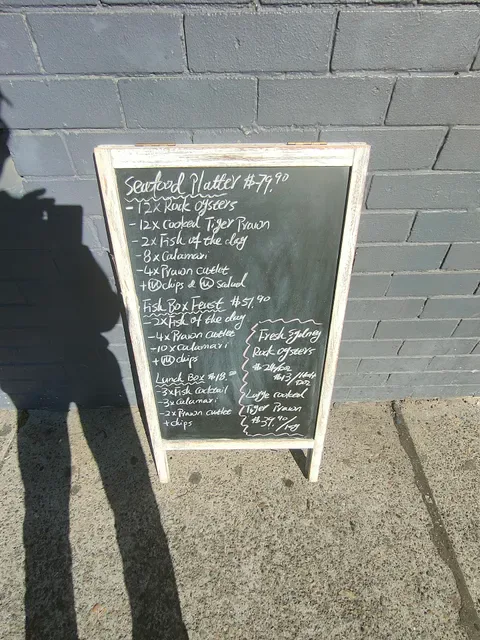 Seafood Platter $79.90
- 12x Rock oysters
- 12x Cooked Tiger Prawn
- 2x Fish of the day
- 8x Calamari
- 4x Prawn cutlet
+ chips & Salad
Fish Box Feast $57.90
- 2x Fish of the day
- 4x Prawn cutlet
- 10x calamari
+ chips
Lunch Box $18
- 3x Fish Cocktail
- 3x calamari
- 2x Prawn cutlet
+ chips
Fresh Sydney
Rock oysters
Large cooked
Tiger Prawn
$39.90/kg